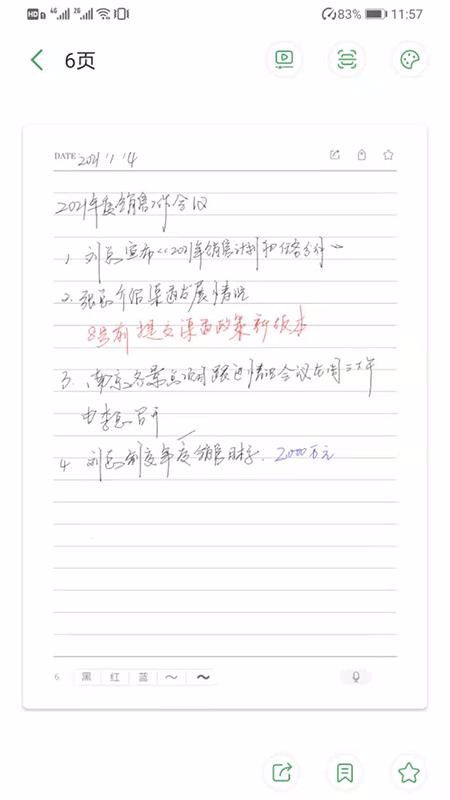 HD 4G 2G 83% 11:57
6页
DATE 2021 1 14
2021年度销售工作会议
1、刘总宣布《2021年销售计划和任务分解》
2、张总介绍渠道发展情况
8号前提交渠道政策新版本
3、南京各景点项目跟进情况会议在周三上午
由李总召开
4 刘总制定年度销售目标、2000万元
6 黑 红 蓝